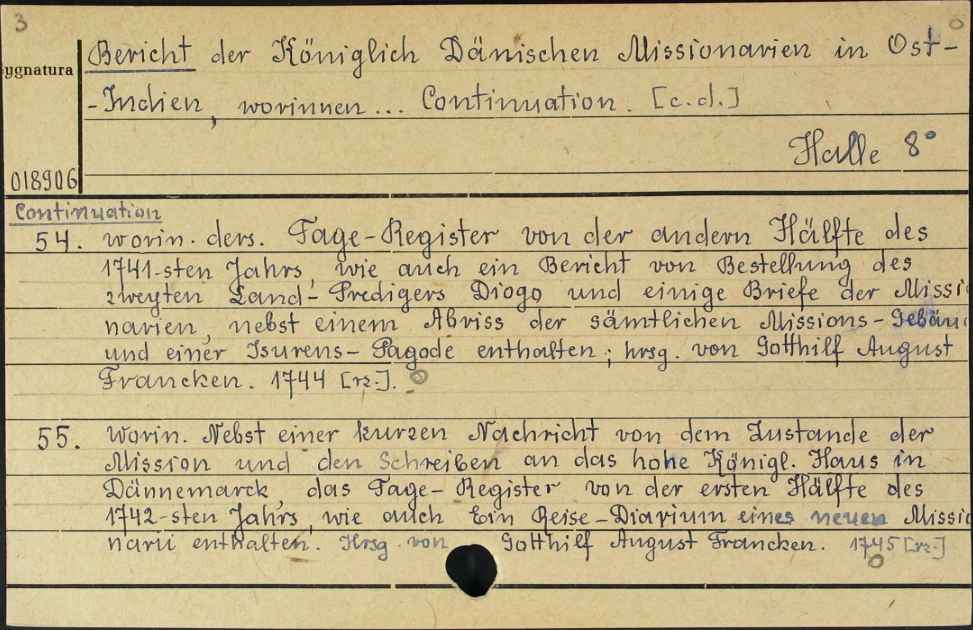 3
Bericht der Königlich Dänischen Missionarien in Ost-
ygnatura
-Indien, worinnen... Continuation. [c.d.]
Halle 8°
018906
Continuation
54. worin. ders. Tage-Register von der andern Hälfte des
1741-sten Jahrs, wie auch ein Bericht von Bestellung des
zweyten Land-Predigers Diogo und einige Briefe der Missi
narien, nebst einem Abriss der sämtlichen Missions-Gebäu
und einer Isurens-Pagode enthalten; hrsg. von Gotthilf August
Francken. 1744 [rz.].
55. Worin. Nebst einer kurzen Nachricht von dem Zustande der
Mission und den Schreiben an das hohe Königl. Haus in
Dännemarck, das Tage-Register von der ersten Hälfte des
1742-sten Jahrs, wie auch Ein Reise-Diarium eines neuen Missi
narii enthalten. Hrsg. von Gotthilf August Francken. 1745 [rz.]